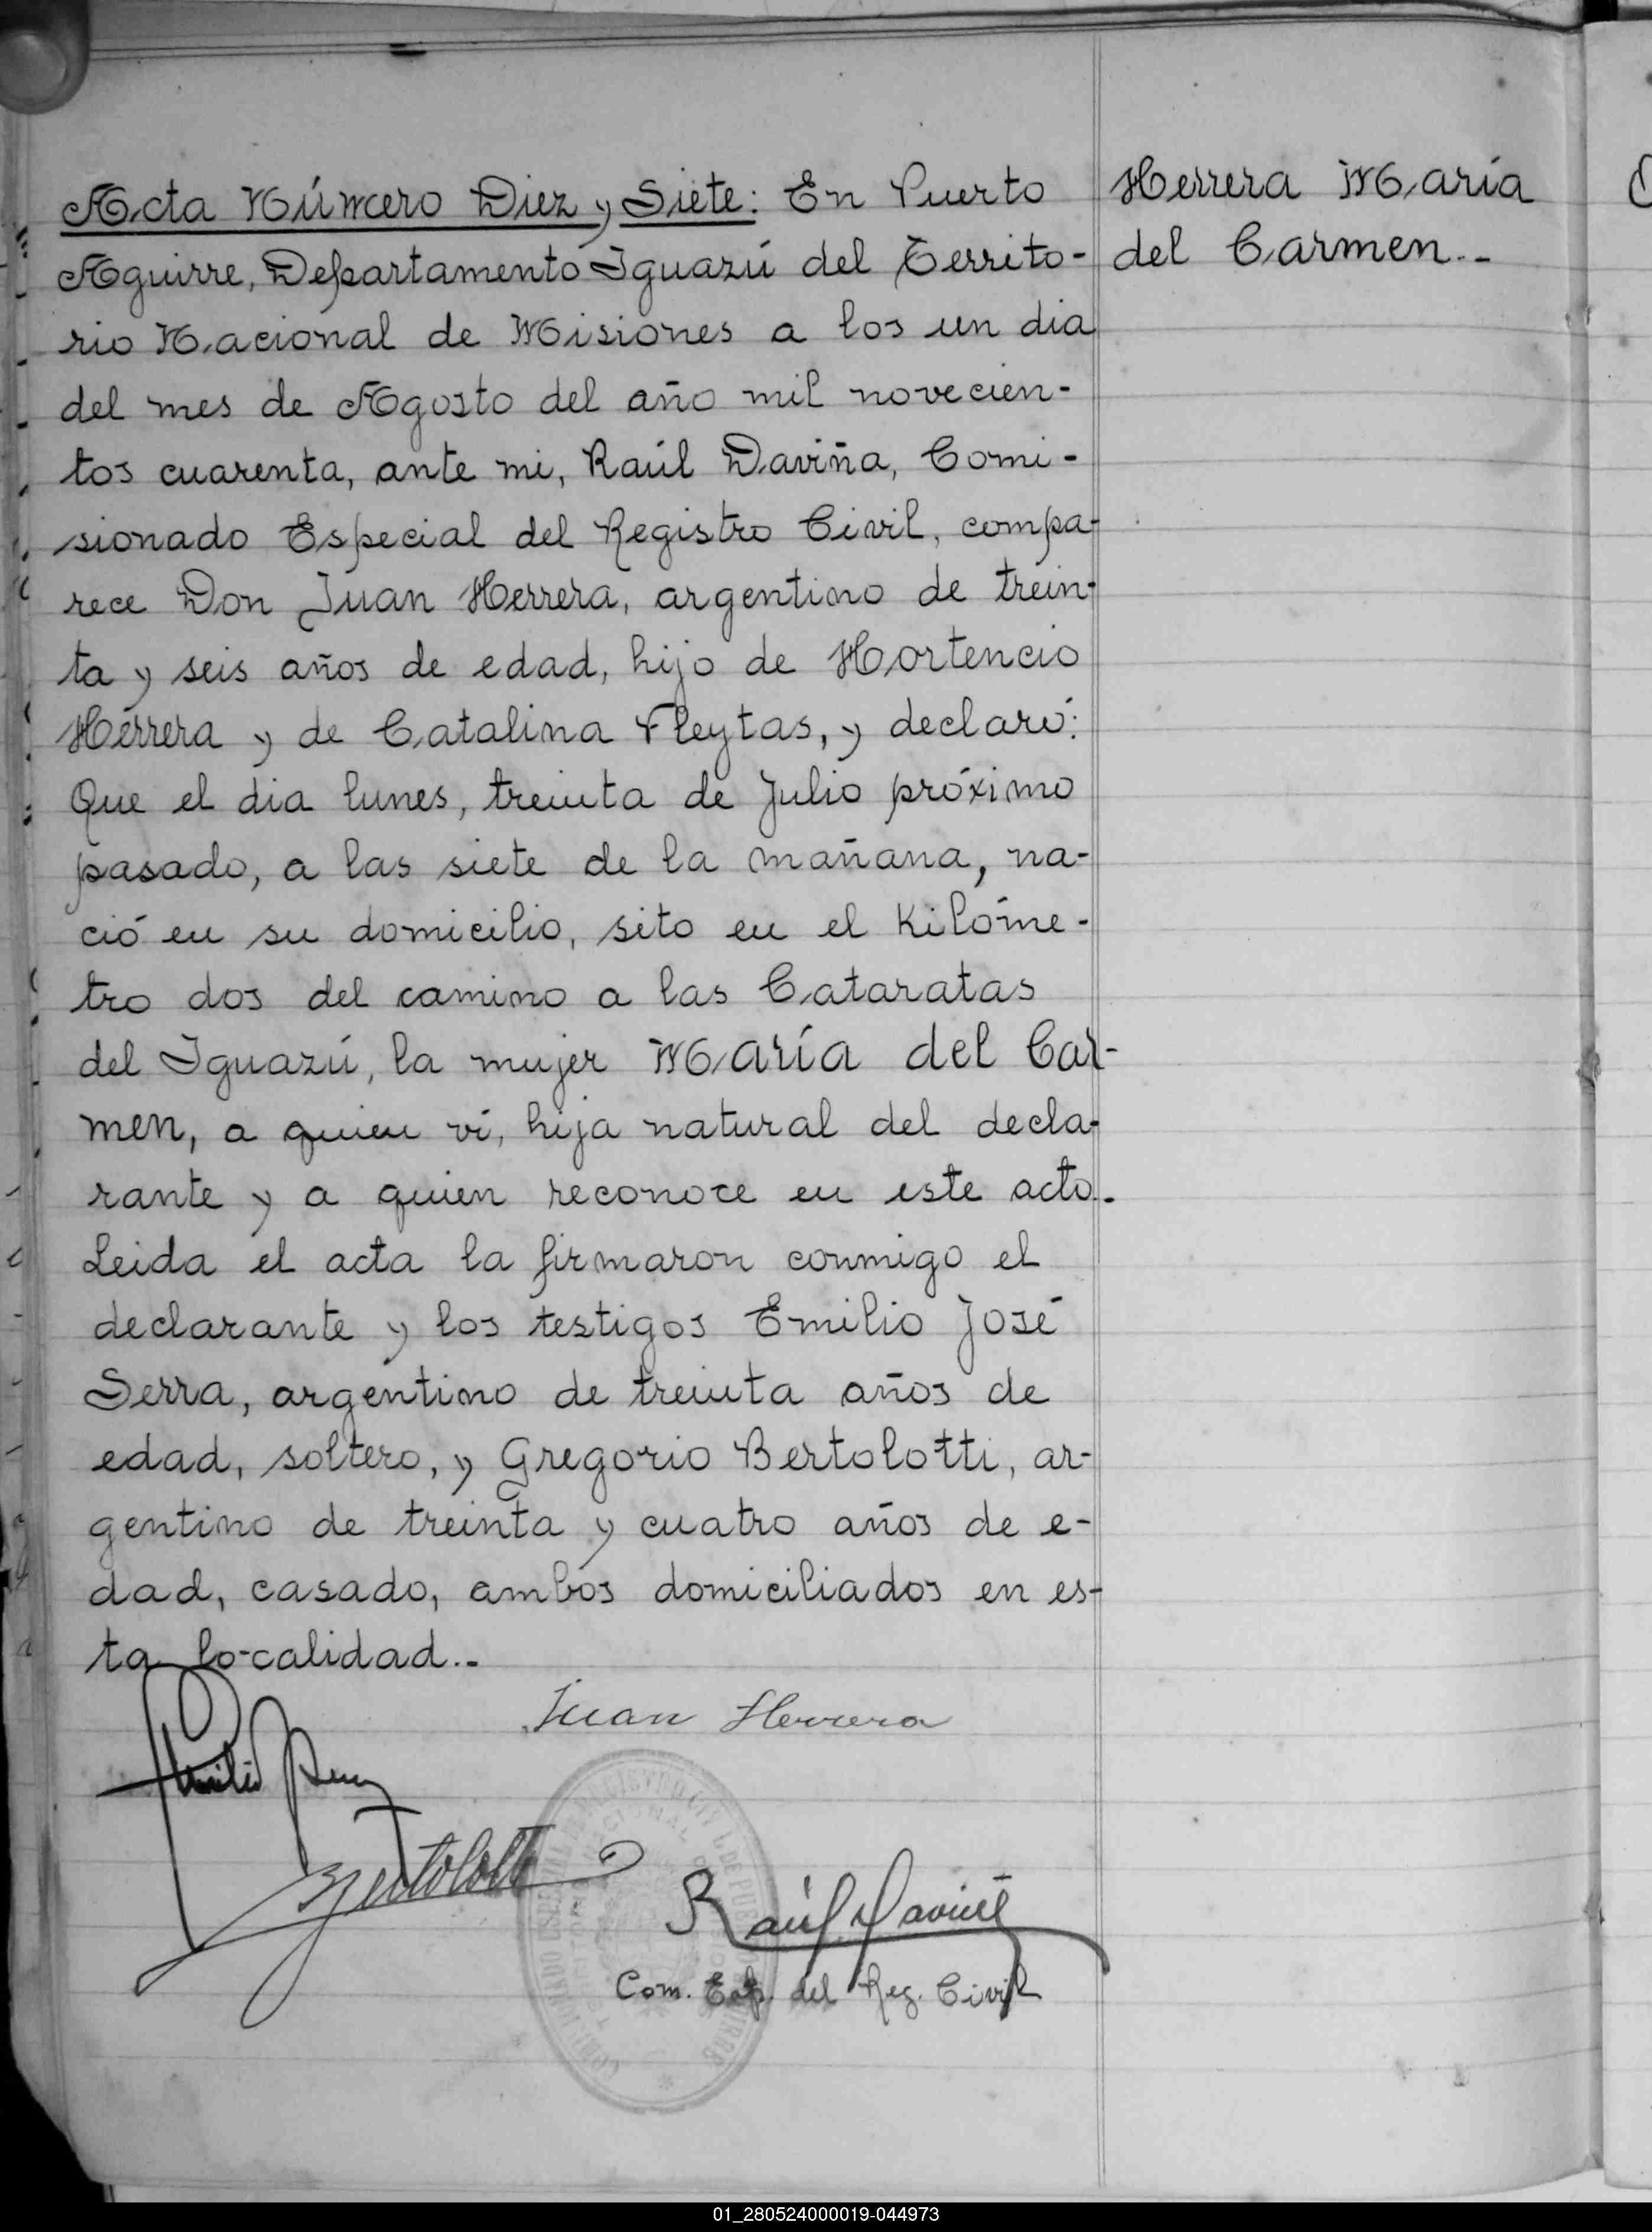 Acta Número Diez y Siete: En Puerto
Aguirre, Departamento Iguazú del Territo-
rio Nacional de Misiones a los un dia
del mes de Agosto del año mil novecien-
tos cuarenta, ante mi, Raúl Daviña, Comi-
sionado Especial del Registro Civil, compa-
rece Don Juan Herrera, argentino de trein-
ta y seis años de edad, hijo de Hortencio
Herrera y de Catalina Fleytas, y declaró:
Que el dia lunes, treinta de Julio próximo
pasado, a las siete de la mañana, na-
ció en su domicilio, sito en el Kilóme-
tro dos del camino a las Cataratas
del Iguazú, la mujer María del Car-
men, a quien ví, hija natural del decla-
rante y a quien reconoce en este acto.-
Leida el acta la firmaron conmigo el
declarante y los testigos Emilio José
Serra, argentino de treinta años de
edad, soltero, y Gregorio Bertolotti, ar-
gentino de treinta y cuatro años de e-
dad, casado, ambos domiciliados en es-
ta lo-calidad.-
Herrera María
del Carmen.-
Juan Herrera
Emilio Serra
Bertolotti
Raúl Daviña
Com. Esp. del Reg. Civil
01_280524000019-044973